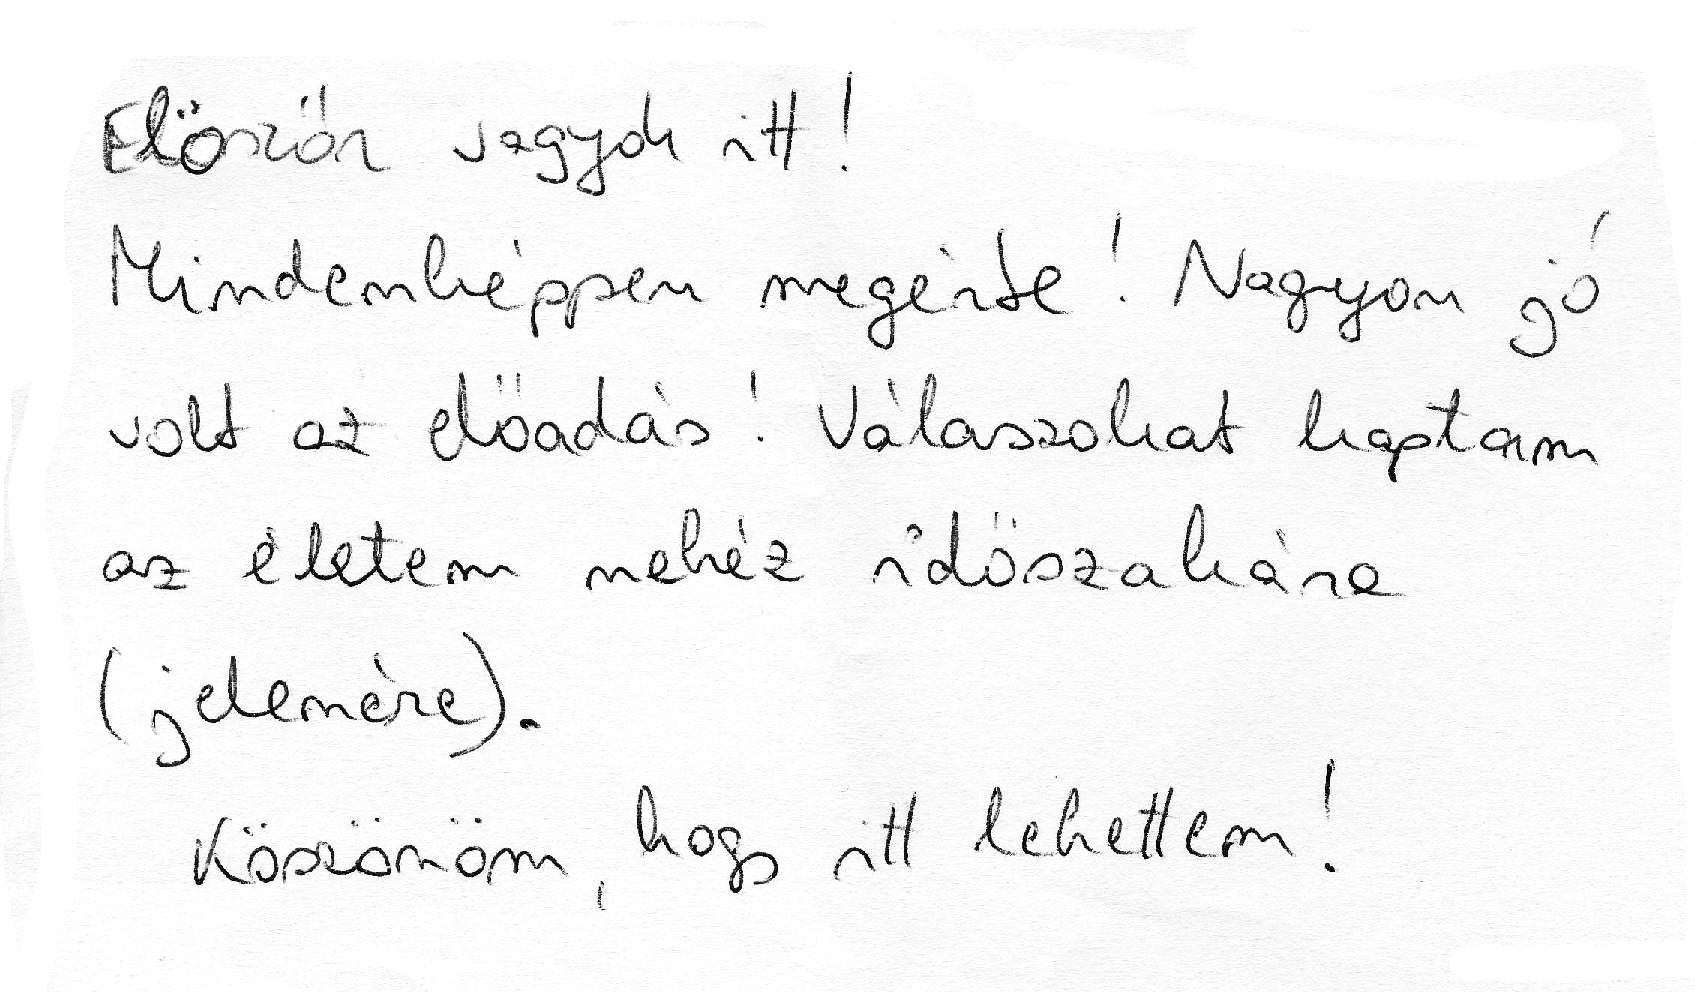 Először vagyok itt!
Mindenképpen megérte! Nagyon jó
volt az előadás! Válaszokat kaptam
az életem nehéz időszakára
(jelenére).
Köszönöm, hogy itt lehettem!